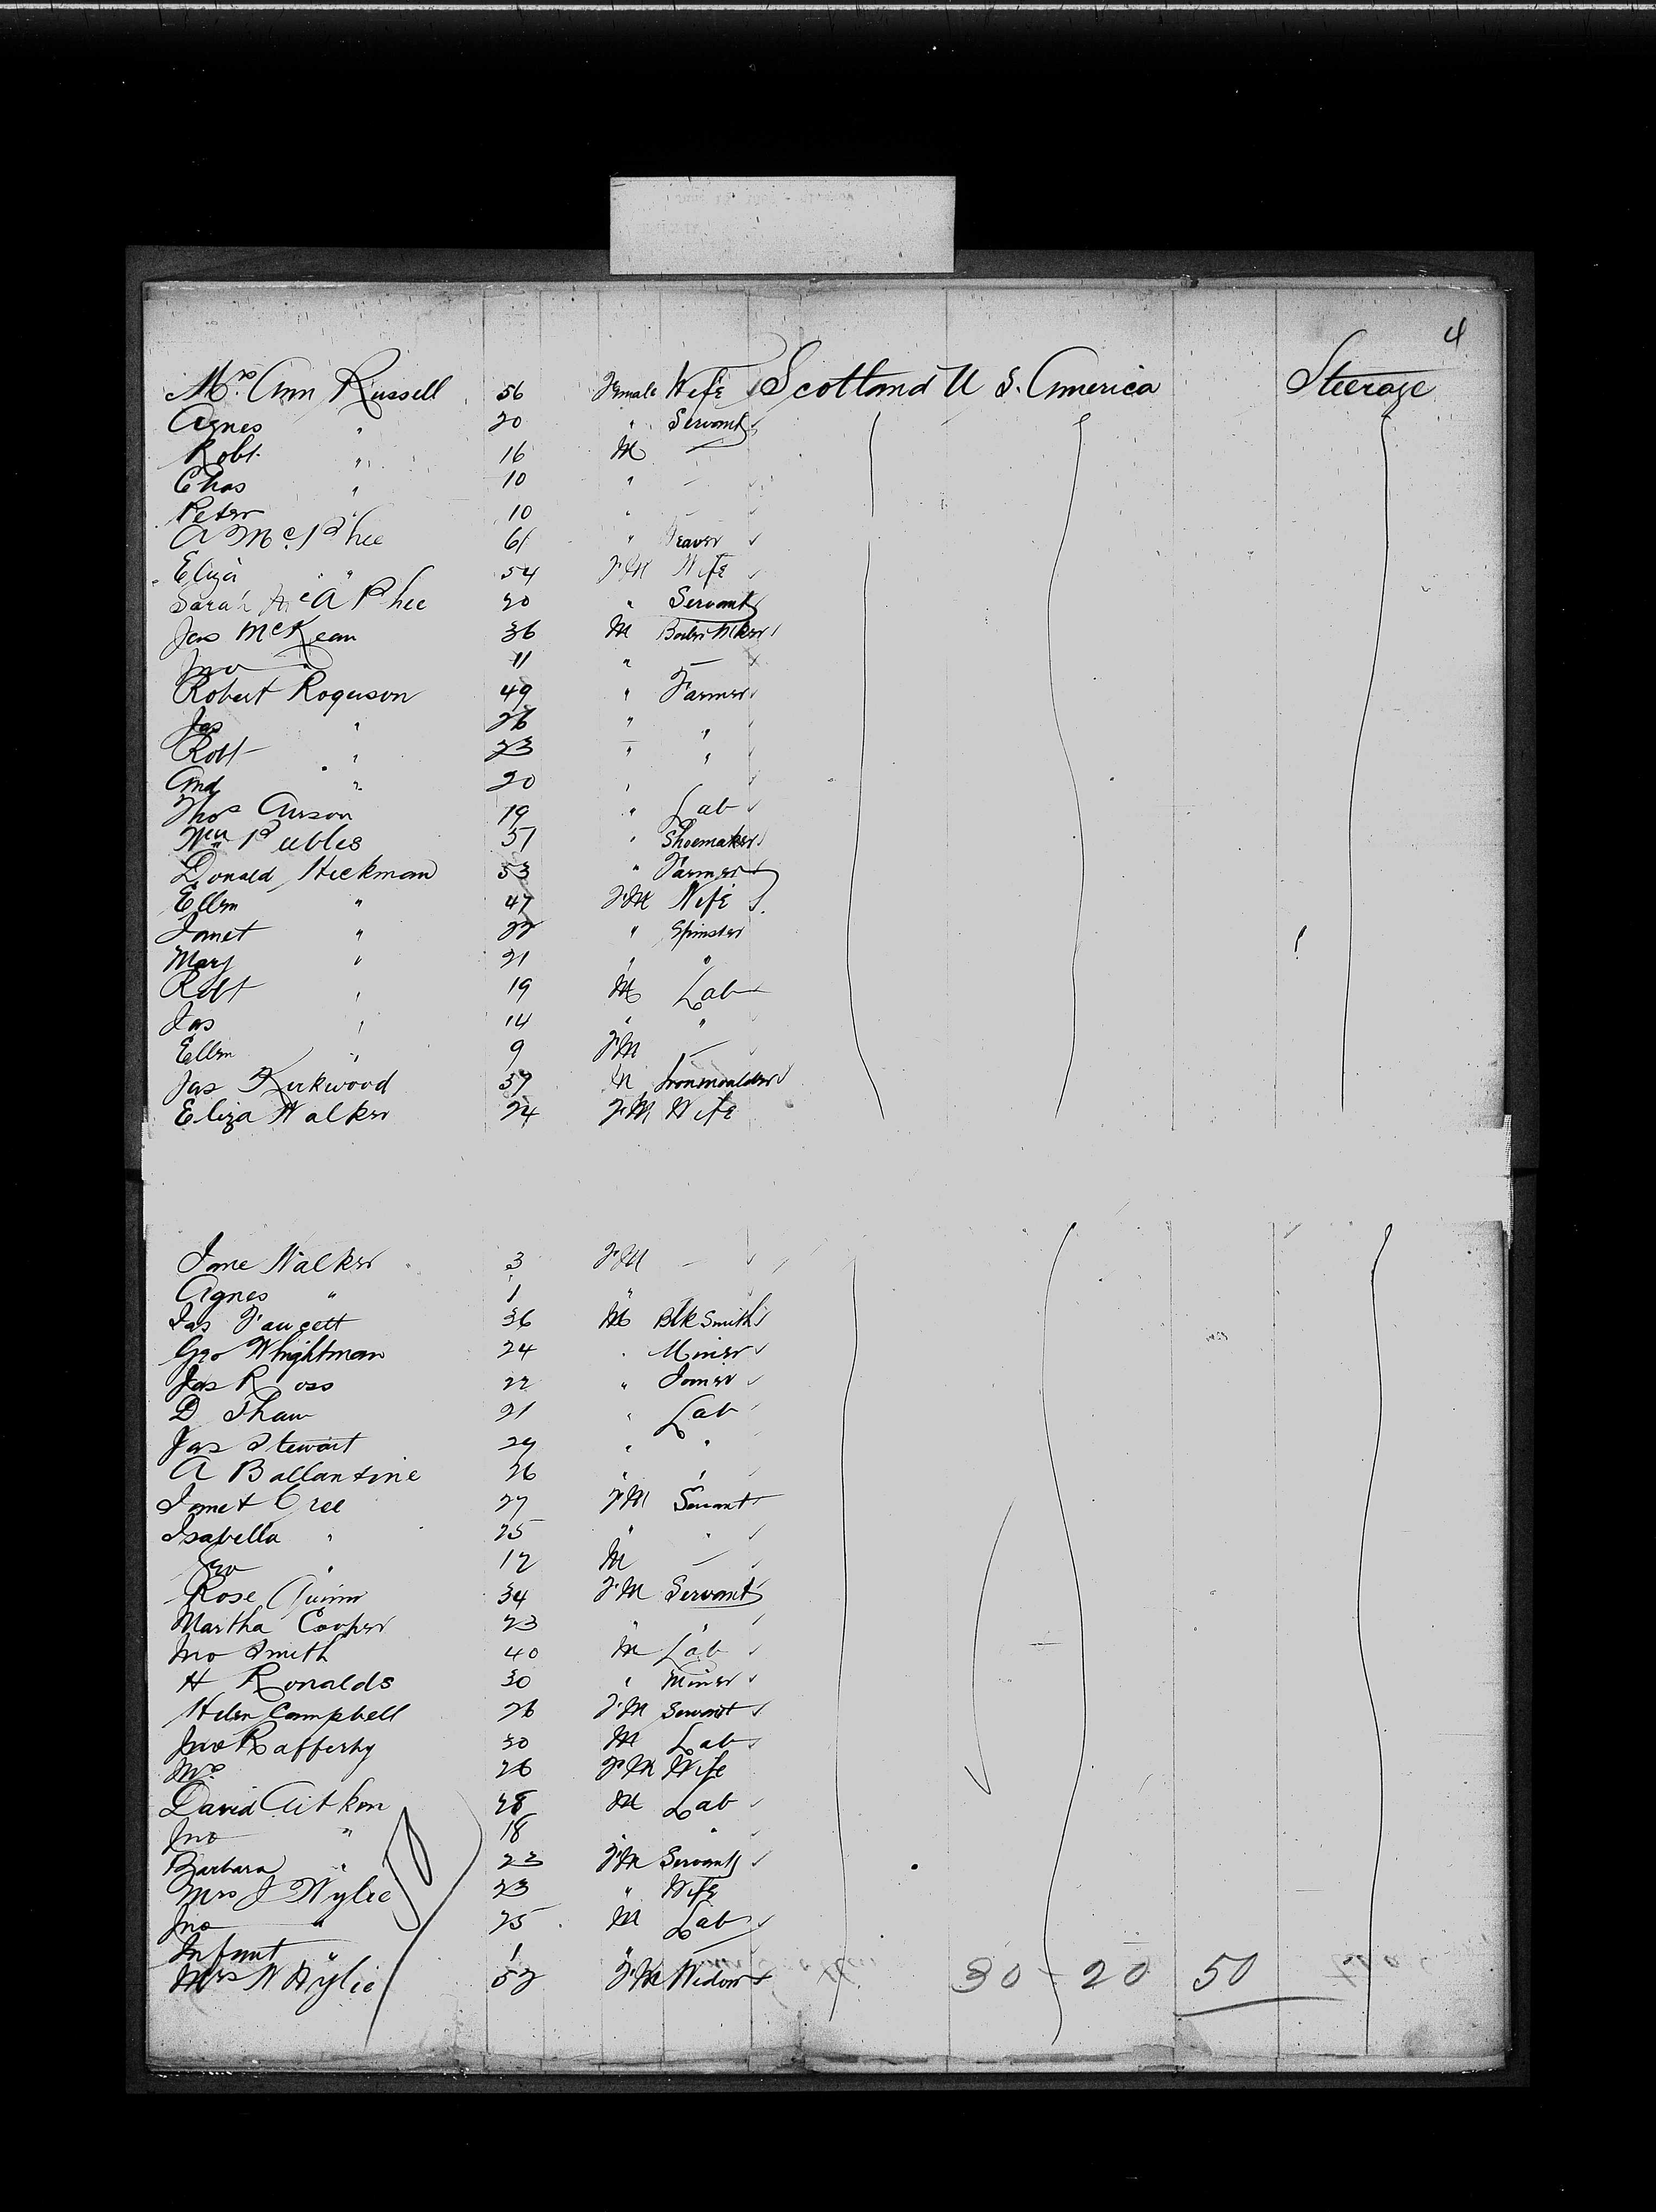 4
Mrs. Ann Russell 56 Female Wife Scotland U S. America Steerage
Agnes " 20 " Servant
Robt. " 16 M —
Chas " 10 " —
Peter " 10 " -
A McPhee 61 " Weaver
Eliza " " 54 FM Wife
Sarah McA Phee 20 " Servant
Jas McKean 36 M Boiler Mker
Jno " 11 " —
Robert Rogerson 49 " Farmer
Jas " 26 " "
Robt " 23 " "
And " 20 "
Thos 19 " Lab
Wm Peebles 51 " Shoemaker
Donald Hickman 53 " Farmer
Ellen " 47 FM Wife
Janet " 22 " Spinster
Mary " 21 " "
Robt " 19 M Lab
Jas " 14 " "
Ellen " 9 FM —
Jas Kirkwood 39 M Ironmoulder
Eliza Walker 24 FM Wife
Jane Walker 3 FM —
Agnes " 1 "
Jas Faucett 36 M Blk Smith
Geo Whightman 24 " Miner
Jas Ross 22 " Joiner
D Shaw 21 " Lab
Jas Stewart 24 " "
A Ballantine 26 " "
Janet Gree 27 FM Servant
Isabella " 25 " "
" 12 M —
Rose Quinn 34 FM Servant
Martha Cooper 23 " "
Jno Smith 40 M Lab
H Ronalds 30 " Miner
Helen Campbell 26 FM Servant
Jno Rafferty 30 M Lab
Mrs 26 FM Wife
David Aitken 28 M Lab
Jno " 18 " "
Barbara " 23 FM Servant
Mrs J Wylie 23 " Wife
Jno " 25 M Lab
Infant " 1 " —
Mrs W Wylie 52 FM Widow 30 - 20 50